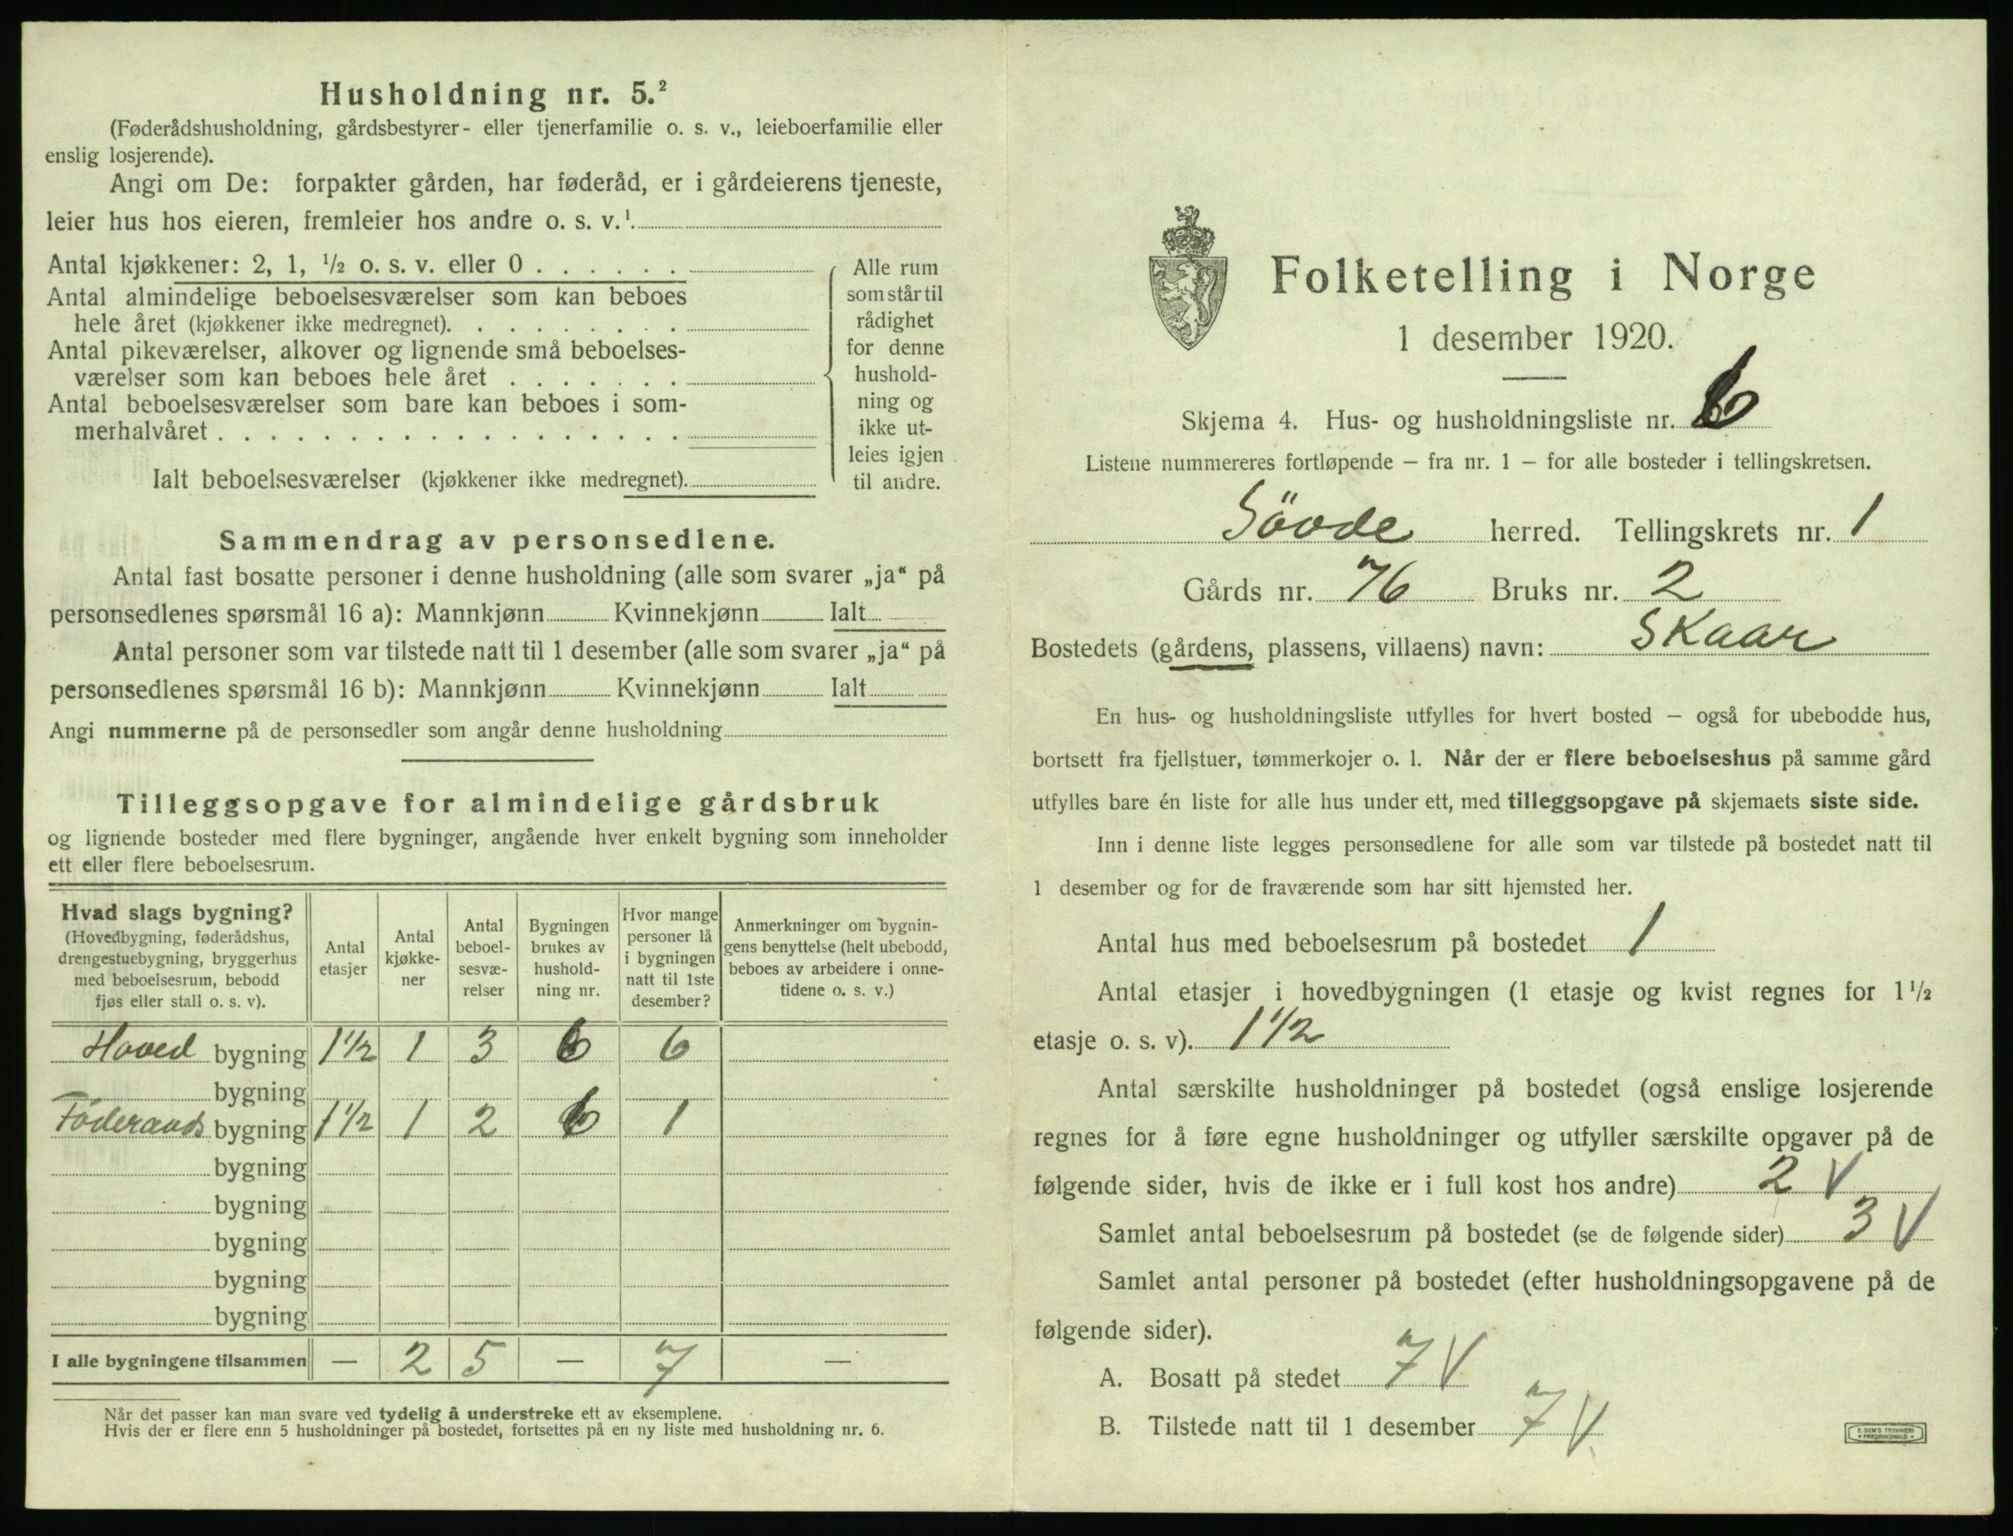 Husholdning nr. 5.²
(Føderådshusholdning, gårdsbestyrer- eller tjenerfamilie o. s. v., leieboerfamilie eller
enslig losjerende).
Angi om De: forpakter gården, har føderåd, er i gårdeierens tjeneste,
leier hus hos eieren, fremleier hos andre o. s. v.¹
Antal kjøkkener: 2, 1, ½ o. s. v. eller 0 . . . . . .
Antal almindelige beboelsesværelser som kan beboes
hele året (kjøkkener ikke medregnet). . . . . . . . .
Antal pikeværelser, alkover og lignende små beboelses-
værelser som kan beboes hele året . . . . . . .
Antal beboelsesværelser som bare kan beboes i som-
merhalvåret . . . . . . . . . . . . . . . . . .
Ialt beboelsesværelser (kjøkkener ikke medregnet).
Alle rum
som står til
rådighet
for denne
hushold-
ning og
ikke ut-
leies igjen
til andre.
Sammendrag av personsedlene.
Antal fast bosatte personer i denne husholdning (alle som svarer „ja“ på
personsedlenes spørsmål 16 a): Mannkjønn Kvinnekjønn Ialt
Antal personer som var tilstede natt til 1 desember (alle som svarer „ja“ på
personsedlenes spørsmål 16 b): Mannkjønn Kvinnekjønn Ialt
Angi nummerne på de personsedler som angår denne husholdning
Tilleggsopgave for almindelige gårdsbruk
og lignende bosteder med flere bygninger, angående hver enkelt bygning som inneholder
ett eller flere beboelsesrum.
Hvad slags bygning?
(Hovedbygning, føderådshus,
drengestuebygning, bryggerhus
med beboelsesrum, bebodd
fjøs eller stall o. s. v).
Antal
etasjer
Antal
kjøkke-
ner
Antal
beboel-
sesvæ-
relser
Bygningen
brukes av
hushold-
ning nr.
Hvor mange
personer lå
i bygningen
natt til 1ste
desember?
Anmerkninger om bygnin-
gens benyttelse (helt ubebodd,
beboes av arbeidere i onne-
tidene o. s. v.)
Hoved bygning 1½ 1 3 6 6
bygning
Föderaads bygning 1½ 1 2 6 1
bygning
bygning
bygning
bygning
bygning
I alle bygningene tilsammen — 2 5 — 7 —
Når det passer kan man svare ved tydelig å understreke ett av eksemplene.
Hvis der er flere enn 5 husholdninger på bostedet, fortsettes på en ny liste med husholdning nr. 6.
Folketelling i Norge
1 desember 1920.
Skjema 4. Hus- og husholdningsliste nr. 6
Listene nummereres fortløpende – fra nr. 1 – for alle bosteder i tellingskretsen.
Sövde herred. Tellingskrets nr. 1
Gårds nr. 76 Bruks nr. 2
Bostedets (gårdens, plassens, villaens) navn: Skaar
En hus- og husholdningsliste utfylles for hvert bosted – også for ubebodde hus,
bortsett fra fjellstuer, tømmerkojer o. l. Når der er flere beboelseshus på samme gård
utfylles bare én liste for alle hus under ett, med tilleggsopgave på skjemaets siste side.
Inn i denne liste legges personsedlene for alle som var tilstede på bostedet natt til
1 desember og for de fraværende som har sitt hjemsted her.
Antal hus med beboelsesrum på bostedet 1
Antal etasjer i hovedbygningen (1 etasje og kvist regnes for 1½
etasje o. s. v). 1½
Antal særskilte husholdninger på bostedet (også enslige losjerende
regnes for å føre egne husholdninger og utfyller særskilte opgaver på de
følgende sider, hvis de ikke er i full kost hos andre) 2 V
Samlet antal beboelsesrum på bostedet (se de følgende sider) 3 V
Samlet antal personer på bostedet (efter husholdningsopgavene på de
følgende sider).
A. Bosatt på stedet 7 V
B. Tilstede natt til 1 desember 7 V
E. SEM'S TRYKKERI
FREDRIKSHALD